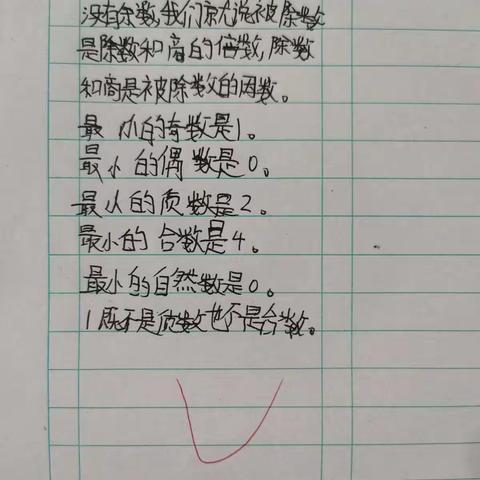 没有余数,我们就说被除数
是除数和商的倍数,除数
和商是被除数的因数。
最小的奇数是1。
最小的偶数是0。
最小的质数是2。
最小的合数是4。
最小的自然数是0。
1既不是质数也不是合数。